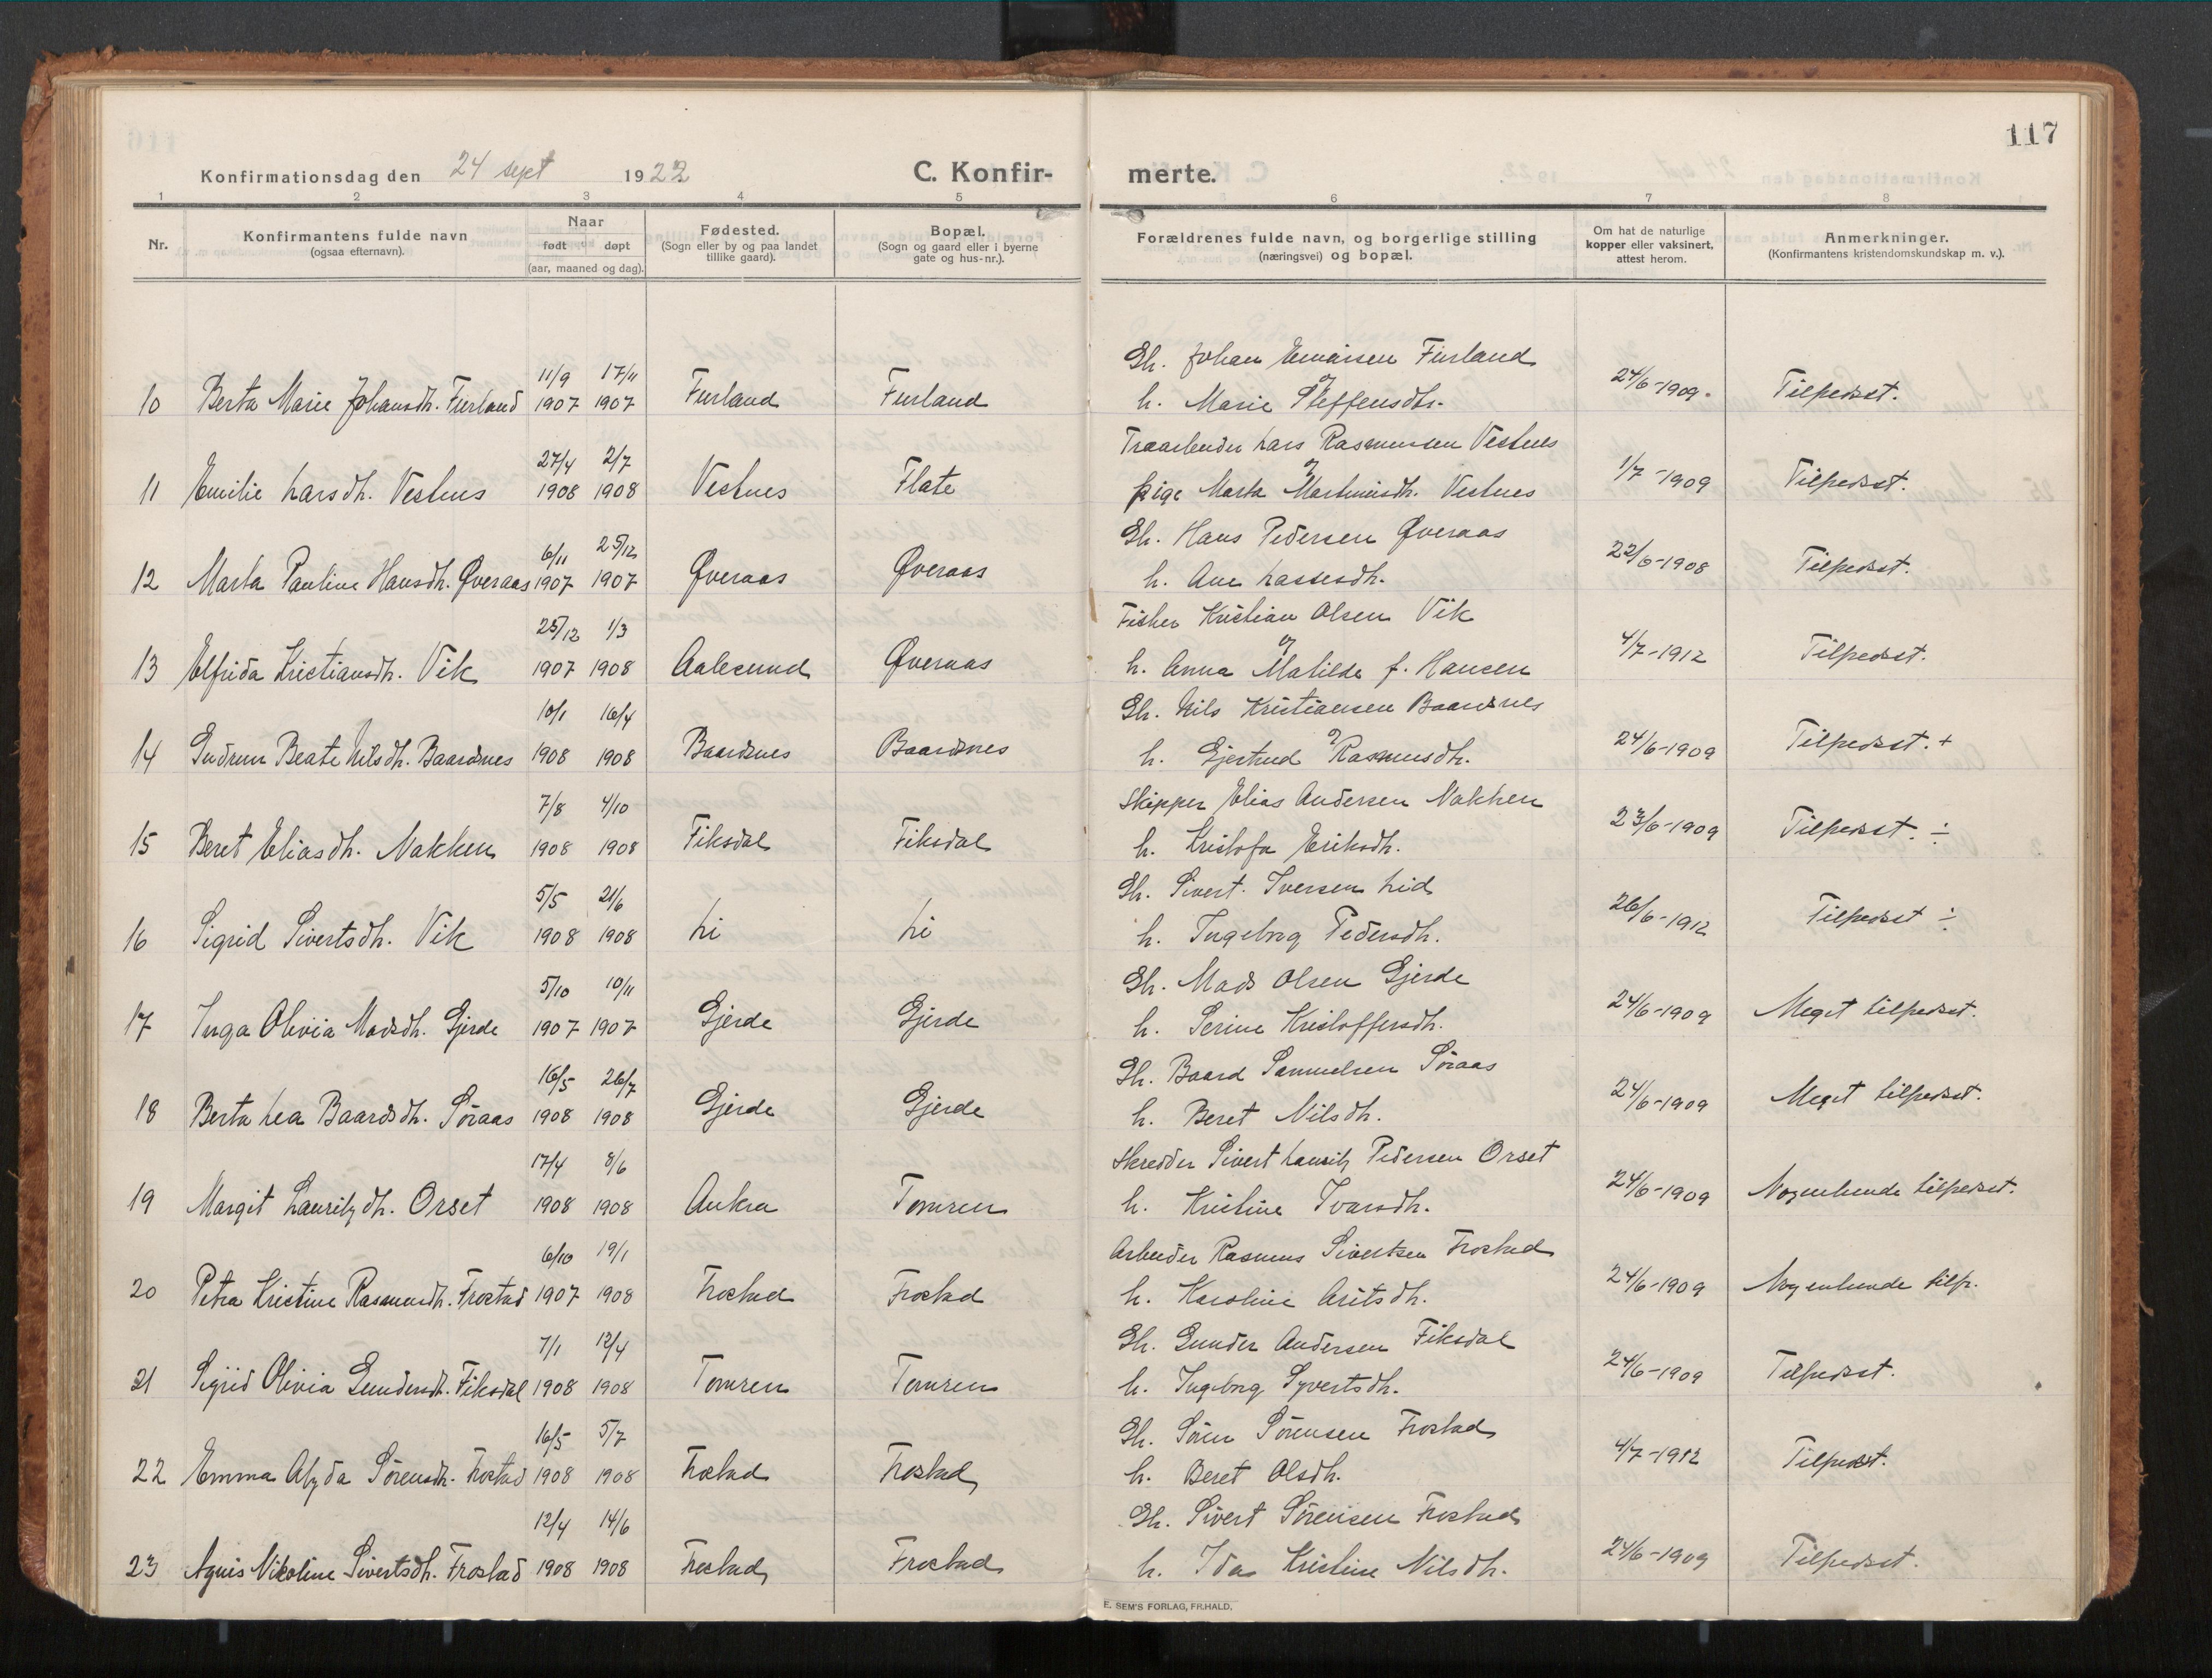 117
Konfirmationsdag den 24 sept 1922 C. Konfir- merte.
1 2 3 4 5 6 7 8
Nr.
Konfirmantens fulde navn
(ogsaa efternavn).
Naar
født døpt
(aar, maaned og dag).
Fødested.
(Sogn eller by og paa landet
tillike gaard).
Bopæl.
(Sogn og gaard eller i byerne
gate og hus-nr.).
Forældrenes fulde navn, og borgerlige stilling
(næringsvei) og bopæl.
Om hat de naturlige
kopper eller vaksinert,
attest herom.
Anmerkninger.
(Konfirmantens kristendomskundskap m. v.).
11/9 17/11 Gh. Johan Furland
10 Berta Marie Johansdh. Furland 1907 1907 Furland Furland h. Marie Steffensdh. 24/6-1909. Tilfredsst.
27/4 2/7 Lars Rasmussen Vestnes
11 Emilie Larsdh. Vestnes 1908 1908 Vestnes Flate pige Marta Martinusdh. Vestnes 1/7-1909 Tilfredsst.
6/11 25/12 Gh. Hans Pedersen Øveraas
12 Marta Pauline Hansdh. Øveraas 1907 1907 Øveraas Øveraas h. Ane Lassesdh. 22/6-1908 Tilfredsst.
25/12 1/3 Fisker Kristian Olsen Vik
13 Elfrida Kristiansdh. Vik 1907 1908 Aalesund Øveraas h. Anna Matilde f. Hansen 4/7-1912 Tilfredsst.
10/1 16/4 Gh. Nils Kristiansen Baardsnes
14 Gudrun Beate Nilsdh. Baardsnes 1908 1908 Baardsnes Baardsnes h. Gjertrud Rasmusdh. 24/6-1909 Tilfredsst. +
7/8 4/10 Skipper Elias Andersen Nakken
15 Beret Eliasdh. Nakken 1908 1908 Fiksdal Fiksdal h. Kristofa Eriksdh. 23/6-1909 Tilfredsst. ÷
5/5 21/6 Gh. Sivert Iversen Lid
16 Sigrid Sivertsdh. Vik 1908 1908 Li Li h. Ingeborg Pedersdh. 26/6-1912 Tilfredsst ÷
5/10 10/11 Gh. Mads Olsen Gjerde
17 Inga Olivia Madsdh. Gjerde 1907 1907 Gjerde Gjerde h. Serine Kristoffersdh. 24/6-1909 Meget tilfredsst.
16/5 26/7 Gh. Baard Samuelsen Søraas
18 Berta Lea Baardsdh. Søraas 1908 1908 Gjerde Gjerde h. Beret Nilsdh. 24/6-1909 Meget tilfredsst.
17/4 8/6 Skredder Sivert Lauritz Pedersen Orset
19 Margit Lauritzdh. Orset 1908 1908 Aukra Tomren h. Kristine Ivarsdh. 24/6-1909 Nogenlunde tilfredsst.
6/10 19/1 Arbeider Rasmus Sivertsen Frostad
20 Petra Kristine Rasmusdh. Frostad 1907 1908 Frostad Frostad h. Karoline 24/6-1909 Nogenlunde tilfr.
7/1 12/4 Gh. Gunder Andersen Fiksdal
21 Sigrid Olivia Gundersdh. Fiksdal 1908 1908 Tomren Tomren h. Ingeborg Syvertsdh. 24/6-1909 Tilfredsst.
16/5 5/7 Gh. Søren Sørensen Frostad
22 Emma Alyda Sørensdh. Frostad 1908 1908 Frostad Frostad h. Beret Olsdh. 4/7-1912 Tilfredsst.
12/4 14/6 Gh. Sivert Sørensen Frostad
23 Agnis Nikoline Sivertsdh. Frostad 1908 1908 Frostad Frostad h. Ida Kristine Nilsdh. 24/6-1909 Tilfredsst.
E. SEM'S FORLAG, FR.HALD.